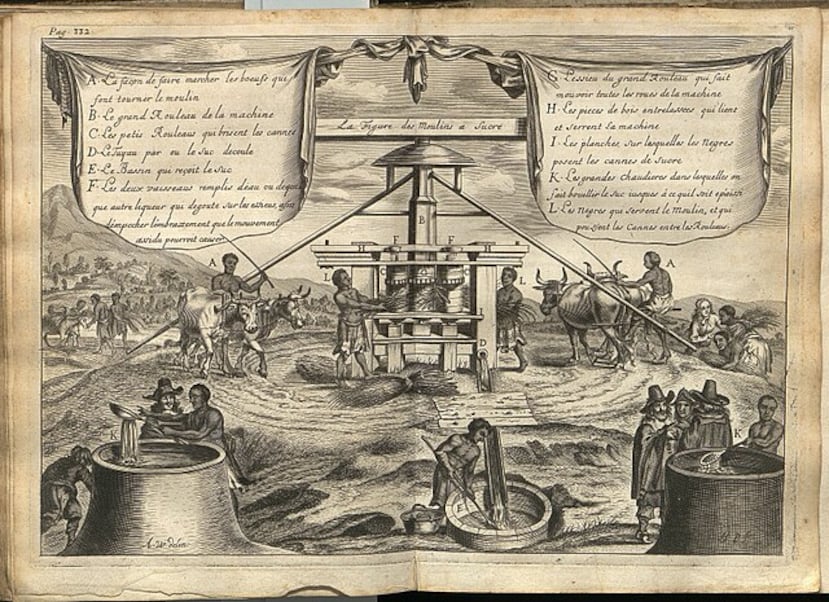 Pag. 332.
A. La façon de faire marcher les boeufs qui
font tourner le moulin
B. Le grand Rouleau de la machine
C. Les petis Rouleaus qui brisent les cannes
D. Le Tuyau par ou le suc decoule
E. Le Bassin qui reçoit le suc
F. Les deux vaisseaus remplis d'eau ou de
que autre liqueur qui degoute sur les essieus, afin
d'empecher l'embrazement que le mouvement
assidu pourroit causer
La Figure des Moulins a Sucre
G. L'essieu du grand Rouleau qui fait
mouvoir toutes les roues de la machine
H. Les pieces de bois entrelassees qui lient
et serrent la machine
I. Les planches, sur lesquelles les Negres
posent les cannes de sucre
K. Les grandes chaudieres dans lesquelles on
fait bouillir le suc iusques à ce qu'il soit epaissi
L. Les Negres qui servent le Moulin, et qui
poussent les Cannes entre les Rouleaus.
A
B
F F
H H
A
A
L
C
L
D
K
K
E
A. W. delin.